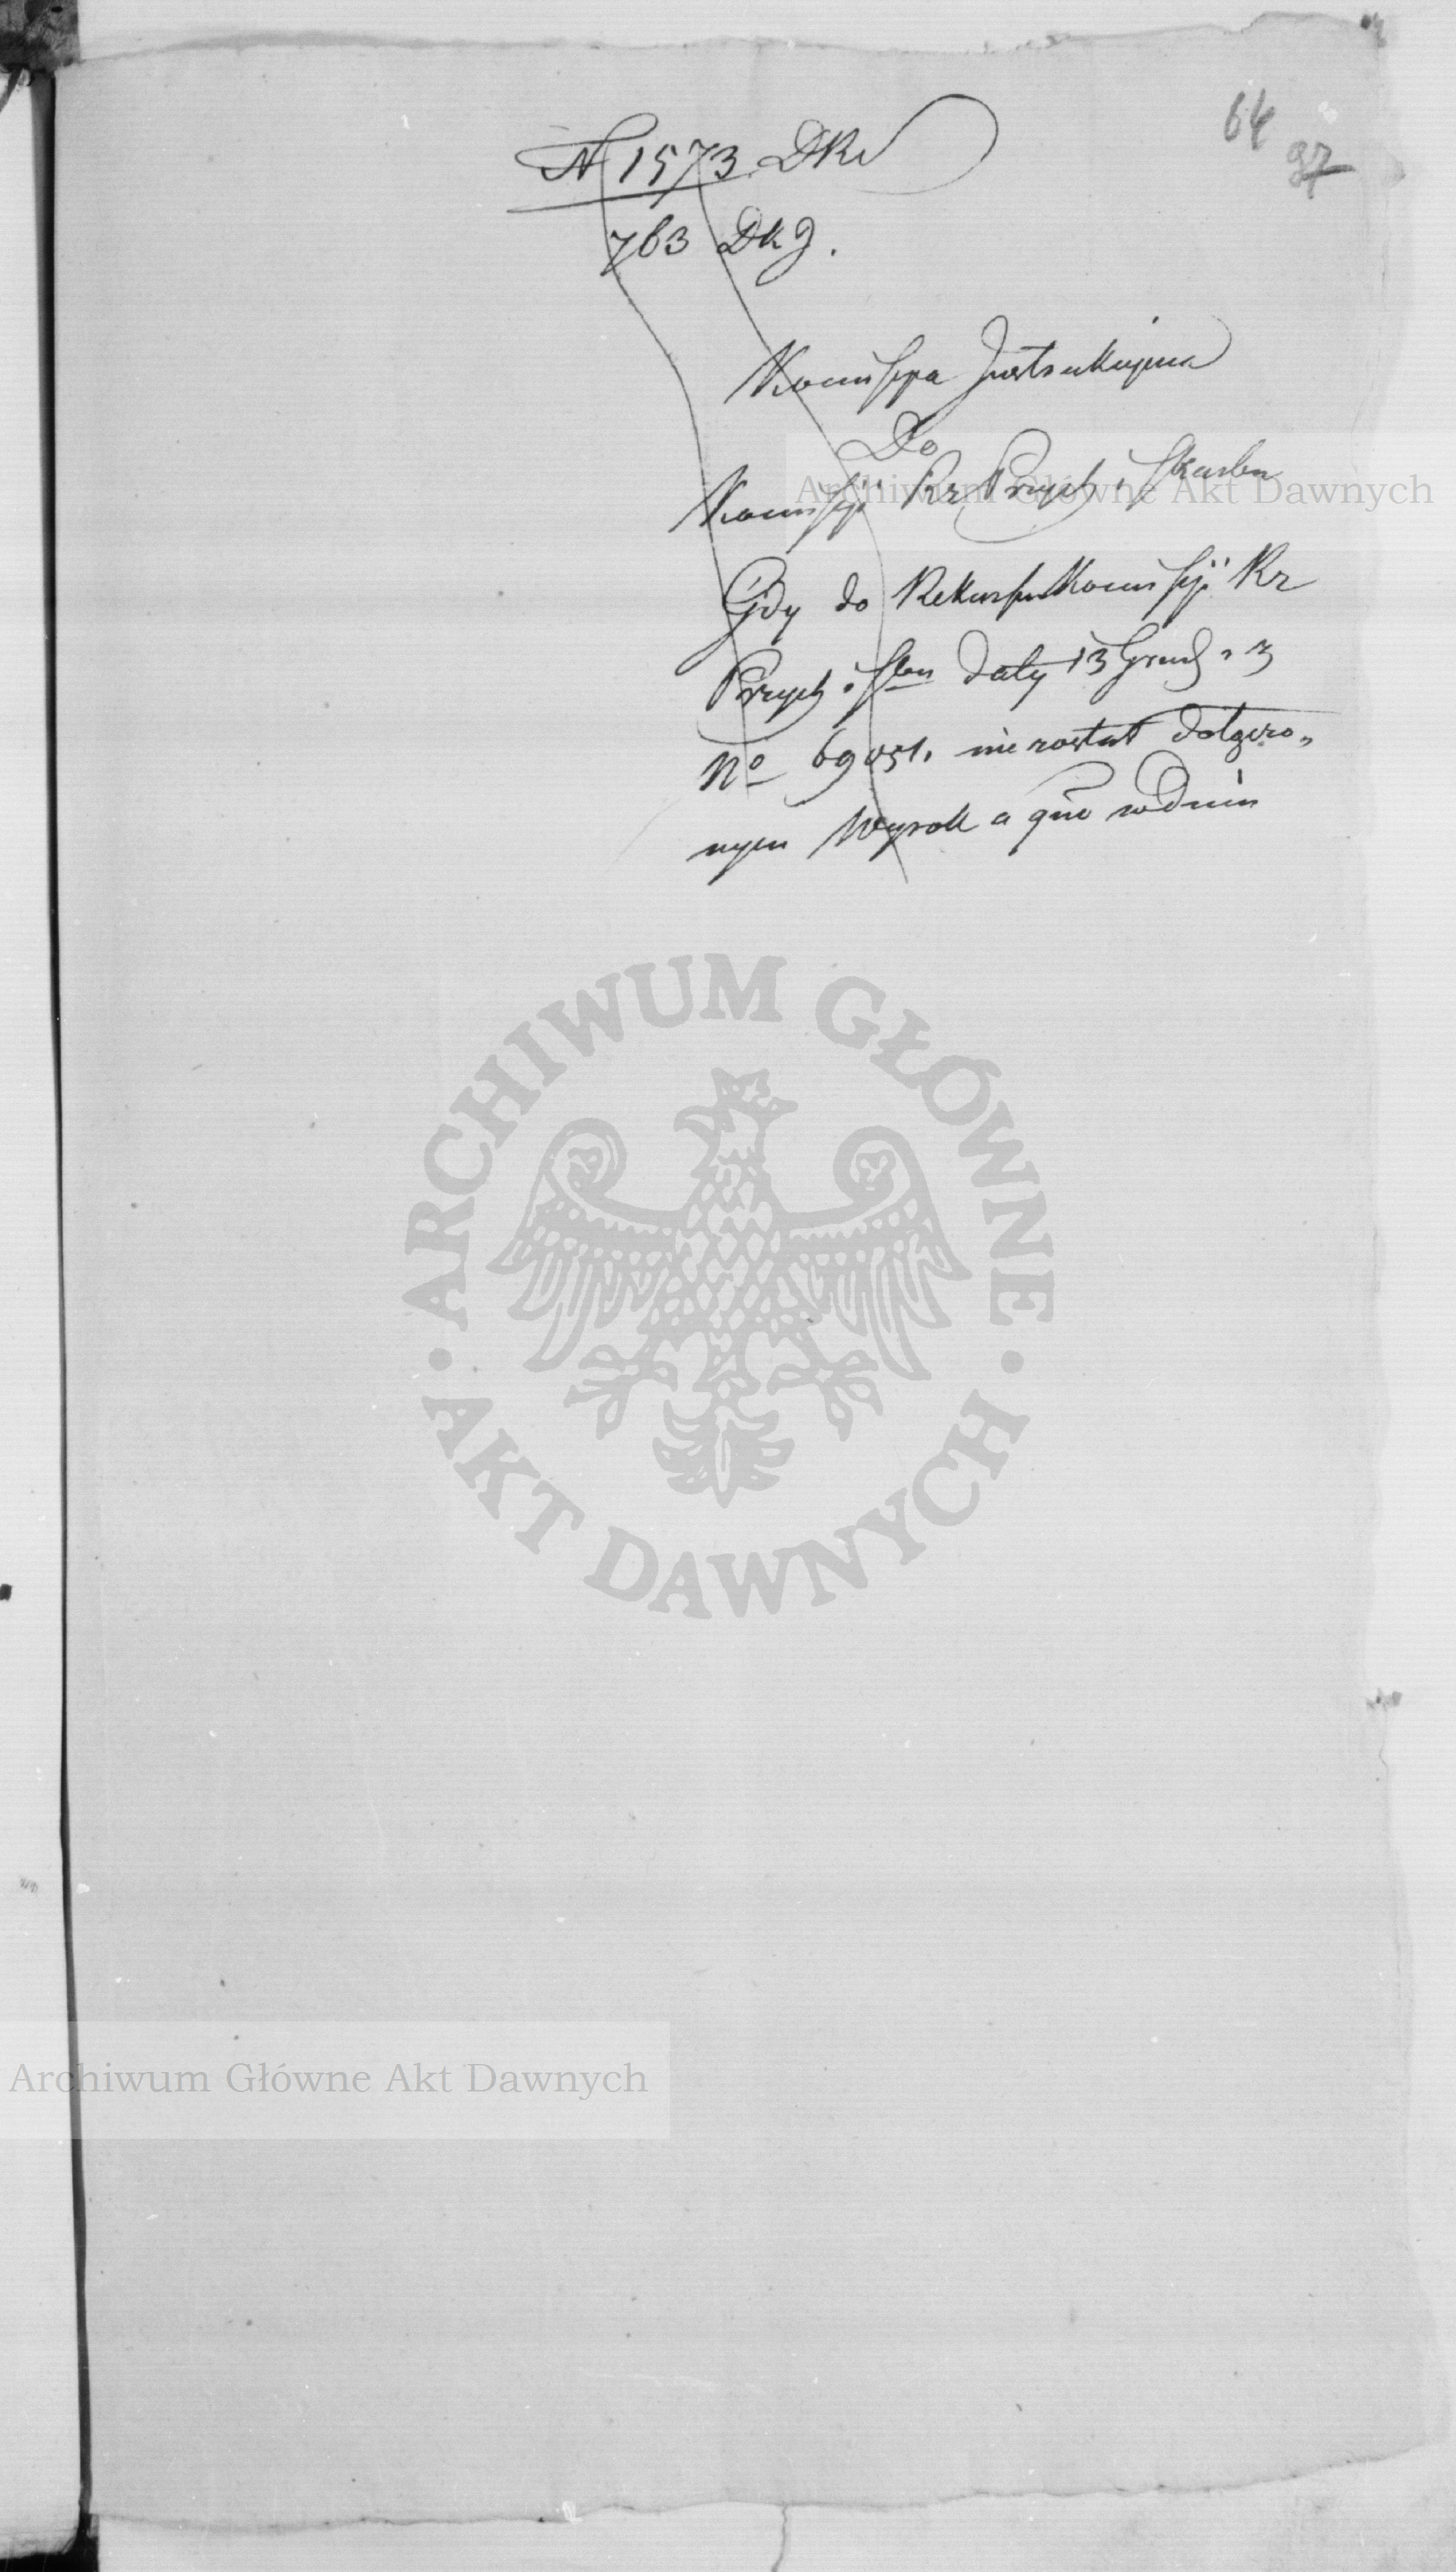 64
97
N 1573 DKr
763 DKJ.
Kommissya Instrukcyjna
Do
Kommissyi Rz Przych i Skarbu
Gdy do Rekursu Kommissyi Rz
Przych i Sbu daty 13 Grud.
No 69051. nie został dołączo„
nym Wyrok a quo w dniu
Archiwum Główne Akt Dawnych
ARCHIWUM GŁÓWNE · AKT DAWNYCH ·
Archiwum Główne Akt Dawnych